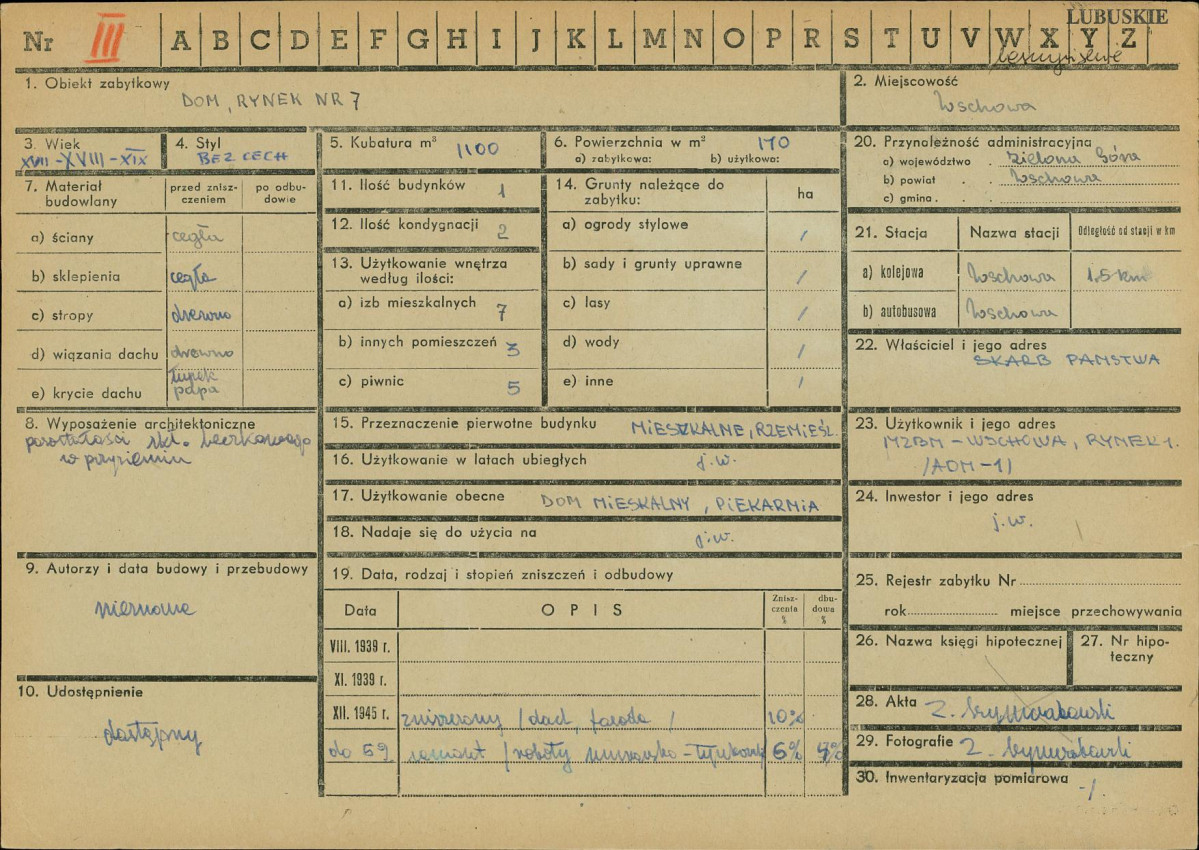 LUBUSKIE
Nr III A B C D E F G H I J K L M N O P R S T U V W X Y Z
1. Obiekt zabytkowy
DOM, RYNEK NR 7
2. Miejscowość
Wschowa
3. Wiek
XVII-XVIII-XIX
4. Styl
BEZ CECH
5. Kubatura m³ 1100
6. Powierzchnia w m² 170
a) zabytkowa: b) użytkowa:
7. Materiał budowlany
przed zniszczeniem
po odbudowie
a) ściany cegła
b) sklepienia cegła
c) stropy drewno
d) wiązania dachu drewno
e) krycie dachu łupek papa
8. Wyposażenie architektoniczne
pozostałości skl. beczkowego
w przyziemiu
9. Autorzy i data budowy i przebudowy
nieznane
10. Udostępnienie
dostępny
11. Ilość budynków 1
12. Ilość kondygnacji 2
13. Użytkowanie wnętrza
według ilości:
a) izb mieszkalnych 7
b) innych pomieszczeń 3
c) piwnic 5
14. Grunty należące do
zabytku:
ha
a) ogrody stylowe /
b) sady i grunty uprawne /
c) lasy /
d) wody /
e) inne /
15. Przeznaczenie pierwotne budynku MIESZKALNE, RZEMIEŚL.
16. Użytkowanie w latach ubiegłych j.w.
17. Użytkowanie obecne DOM MIESKALNY, PIEKARNIA
18. Nadaje się do użycia na j.w.
19. Data, rodzaj i stopień zniszczeń i odbudowy
Data OPIS Zniszczenia % dbudowa %
VIII. 1939 r.
XI. 1939 r.
XII. 1945 r. zniszczony /dach, fasada / 10%
do 59 remont /roboty murarsko-tynkarsk 6% 4%
20. Przynależność administracyjna
a) województwo Zielona Góra
b) powiat Wschowa
c) gmina
21. Stacja Nazwa stacji Odległość od stacji w km
a) kolejowa Wschowa 1,5 km
b) autobusowa Wschowa
22. Właściciel i jego adres
SKARB PAŃSTWA
23. Użytkownik i jego adres
MZBM - WSCHOWA, RYNEK 1.
/ADM-1/
24. Inwestor i jego adres
j.w.
25. Rejestr zabytku Nr
rok miejsce przechowywania
26. Nazwa księgi hipotecznej
27. Nr hipoteczny
28. Akta Z.
29. Fotografie Z.
30. Inwentaryzacja pomiarowa -/.